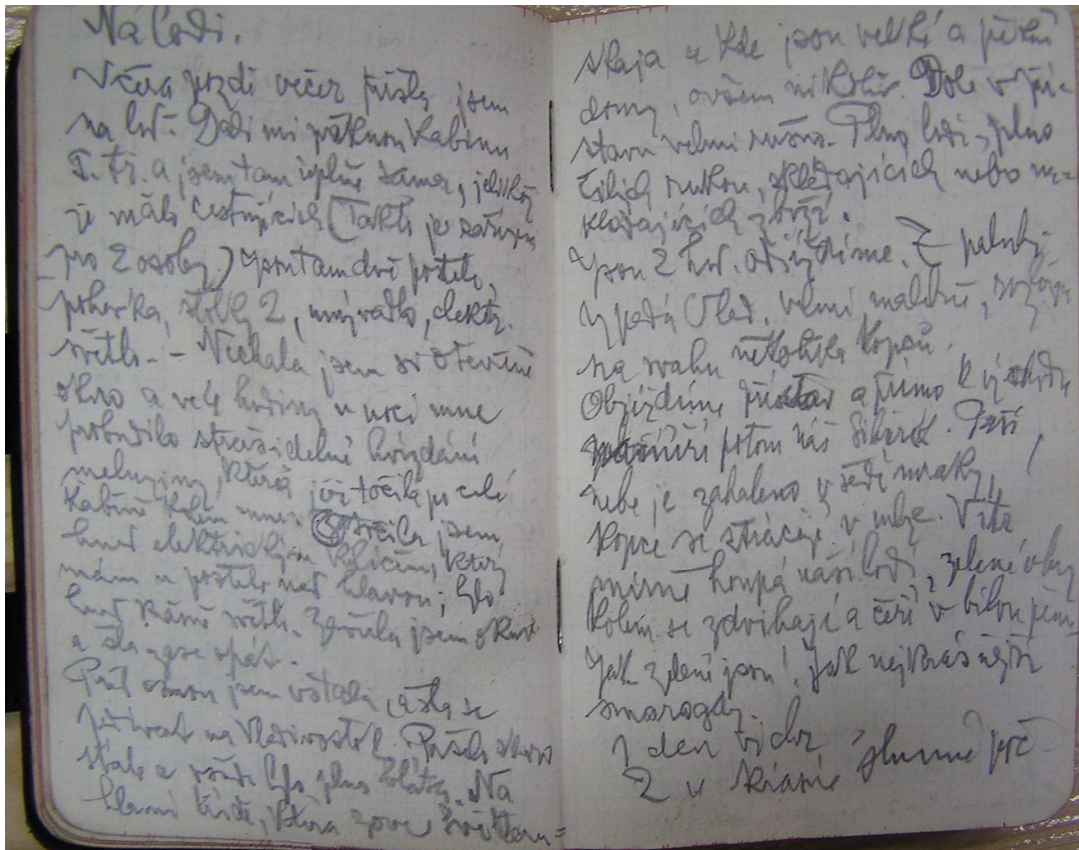 Na lodi.
Včera pozdě večer přišla jsem
na loď. Dali mi pěknou kabinu
I. tř. a jsem tam úplně sama, jelikož
je málo cestujících (Takto je zařízena
pro 2 osoby.) Jsou tam dvě postele,
pohovka, stolky 2, umývadlo, elektr.
světlo. - Nechala jsem si otevřené
okno a ve 4 hodiny v noci mne
probudilo strašidelné hvízdání
meluziny, která již točila po celé
kabině kolem mne. jsem
hned elektrickým klíčem, který
mám u postele nad hlavou; bylo
hned krásné světlo. Zavřela jsem okno
a šla zase spát.
Před osmou jsem vstala, a šla se
podívat na Vladivostok. Pršelo skoro
stále a všude bylo plno bláta. Na
hlavní třídě, která zove Světlan=
skaja u kde jsou velké a pěkné
domy, ovšem nikoliv. Dole v pří-
stavu velmi rušno. Plno lodí, plno
čilých rukou, skládajících nebo na-
kládajících zboží.
Jsou 2 hod. odjíždíme. Z paluby
vypadá Vlad. velmi malebně, rozložen
na svahu několika kopců.
Objíždíme přístav a přímo k východu
potom náš Prší,
nebe je zahaleno v šedé mraky,
kopce se ztrácejí v mlze. Vítr
mírně houpá naší lodí, zelené vlny
kolem se zdvihají a čeří v bílou pěnu.
Jak zelené jsou! Jak nejkrásnější
smaragdy.